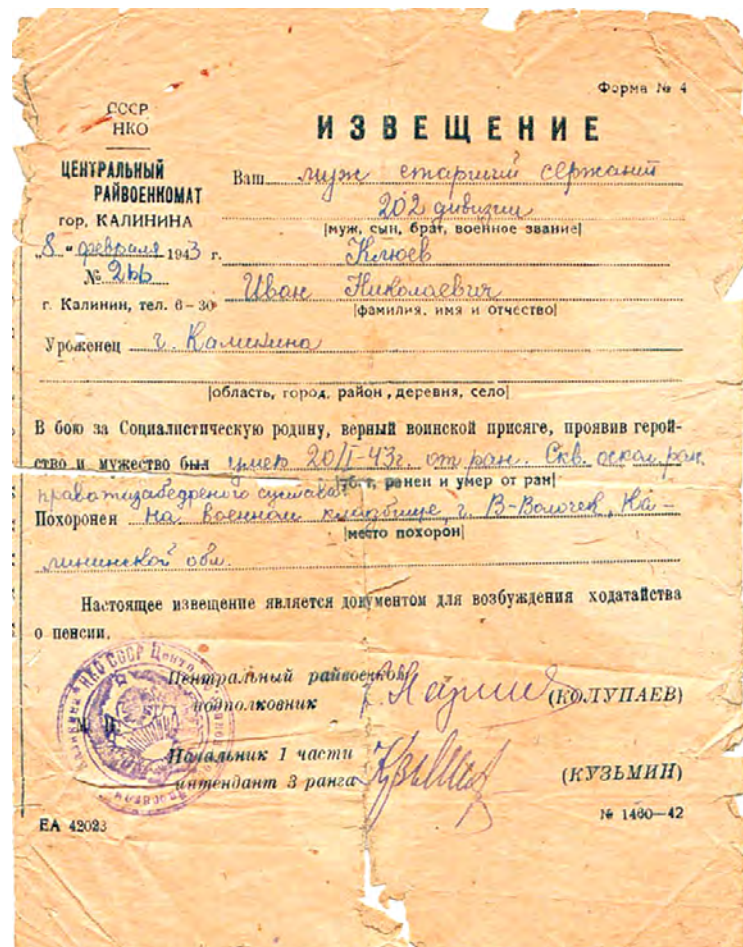 Форма № 4
СССР
НКО
ИЗВЕЩЕНИЕ
ЦЕНТРАЛЬНЫЙ
РАЙВОЕНКОМАТ
гор. КАЛИНИНА
„8“ февраля 1943 г.
№ 266
г. Калинин, тел. 6-30
Ваш муж старший сержант
202 дивизии
|муж, сын, брат, военное звание|
Клюев
Иван Николаевич
|фамилия, имя и отчество|
Уроженец г. Калинина
|область, город, район, деревня, село|
В бою за Социалистическую родину, верный воинской присяге, проявив герой-
ство и мужество был умер 20/I-43г. от ран. Скв. оскол. ран.
ранен и умер от ран|
Похоронен на военном кладбище, г. В-Волочек, Ка-
|место похорон|
лининской обл.
Настоящее извещение является документом для возбуждения ходатайства
о пенсии.
Центральный райвоенком
подполковник
(КОЛУПАЕВ)
Начальник 1 части
интендант 3 ранга
(КУЗЬМИН)
ЕА 42023
№ 1460—42
НКО СССР